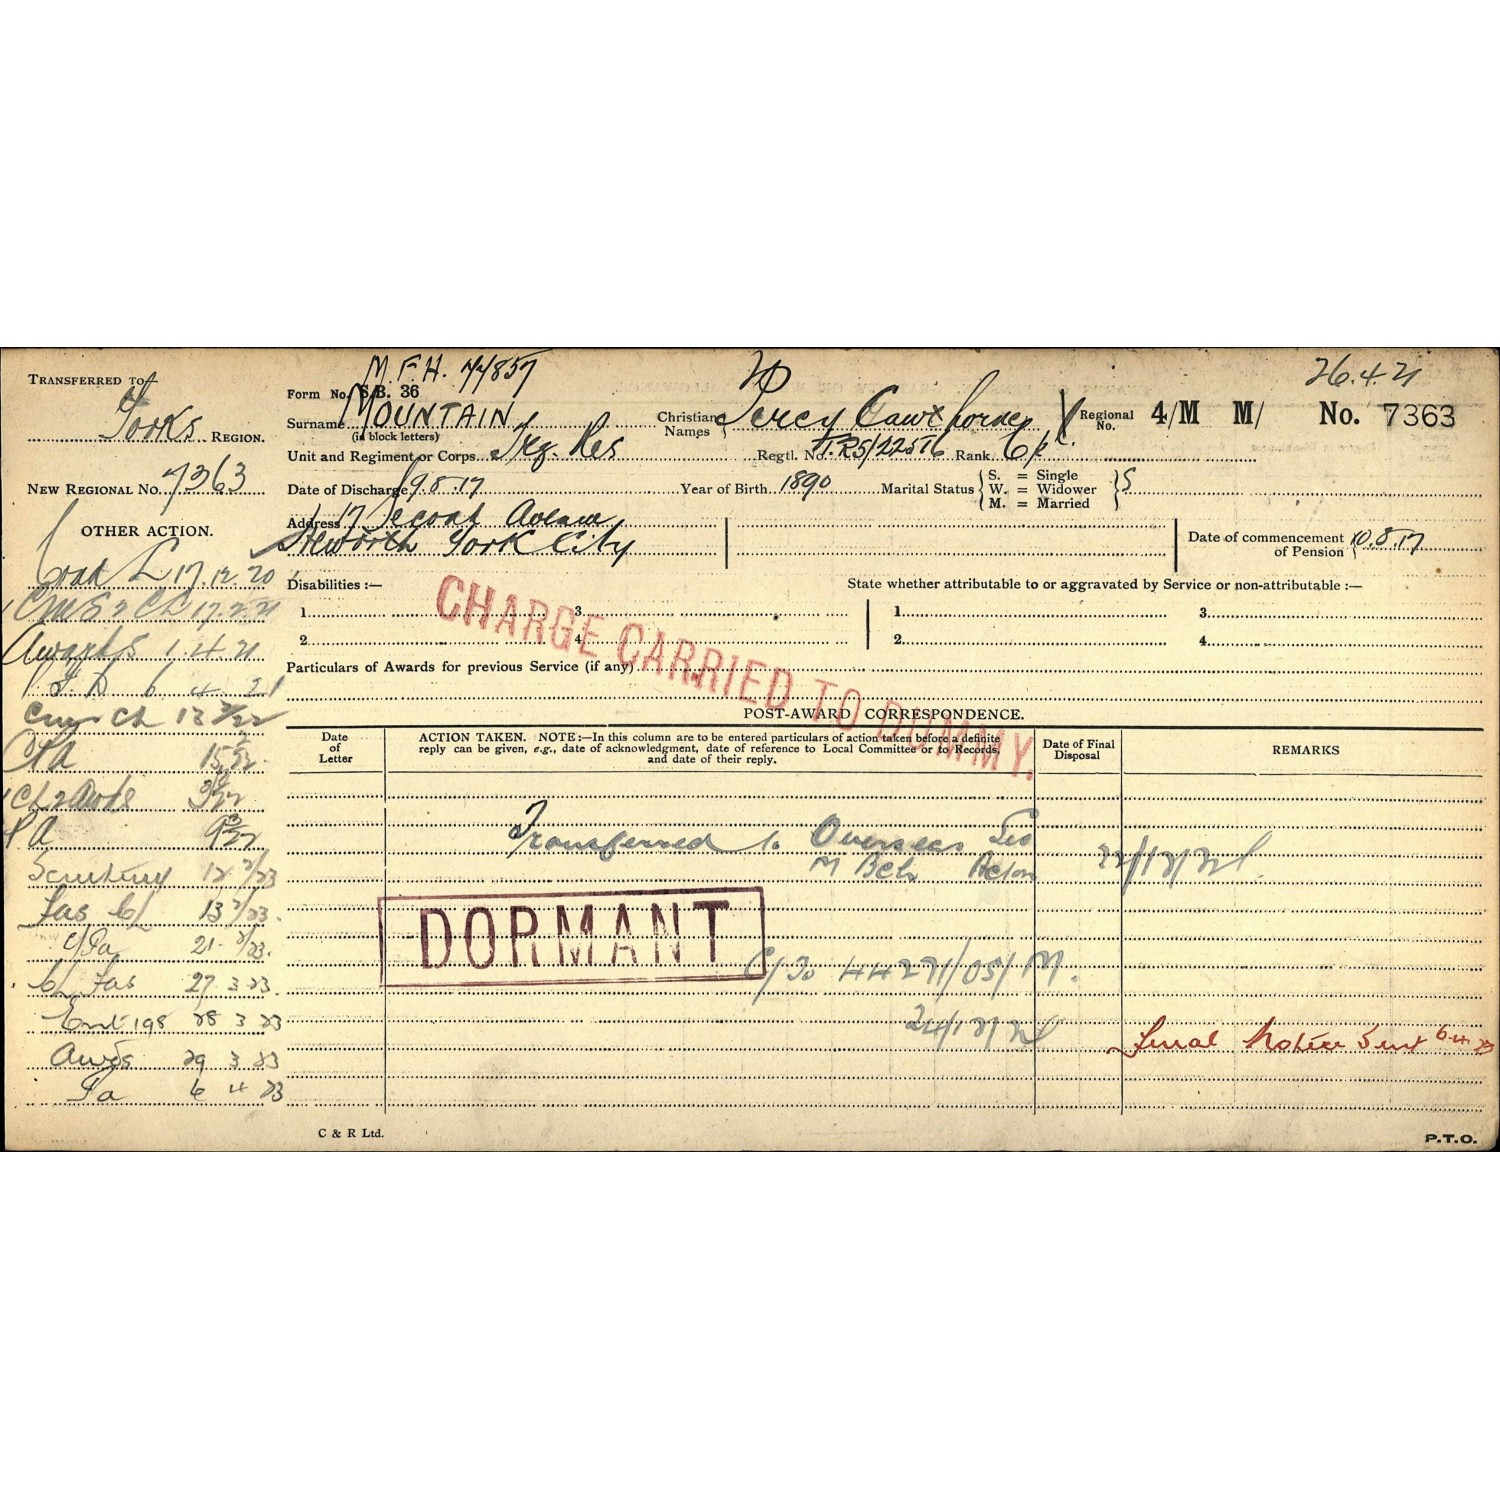 M.F.H. 77857
26.4.21
TRANSFERRED TO
Yorks REGION.
NEW REGIONAL NO. 7363
OTHER ACTION.
17.12.20
17.2.21
Awards 1.4.21
6 4 21
Ch 13
15
Ch 2 Awds
P A
Scrutiny 12 2/23
13 2/23.
21 2/23.
27 3 23.
Ent 198 28 3 23
Awds 29 3 23
Pa 6 4 23
Form No. S.B. 36
Surname MOUNTAIN
(in block letters)
Christian Names Percy Cawthorne
Regional No. 4/M M/ No. 7363
Unit and Regiment or Corps Trg. Res
Regtl. No. T.R5/22516 Rank Cpl.
Date of Discharge 9.8.17
Year of Birth 1890
Marital Status { S. = Single
W. = Widower
M. = Married } S
Address 17 Second Avenue
Heworth York City
Date of commencement of Pension { 10.8.17
Disabilities :—
State whether attributable to or aggravated by Service or non-attributable :—
1 3 1 3
2 4 2 4
CHARGE CARRIED TO DUMMY.
Particulars of Awards for previous Service (if any)
POST-AWARD CORRESPONDENCE.
Date of Letter
ACTION TAKEN. NOTE:—In this column are to be entered particulars of action taken before a definite
reply can be given, e.g., date of acknowledgment, date of reference to Local Committee or to Records,
and date of their reply.
Date of Final Disposal
REMARKS
Transferred to Overseas
M Bch Acton
22/12/21
DORMANT
C/To 44271/05/M.
24/12/21
Final Notice Sent 6.4.23
C & R Ltd.
P.T.O.